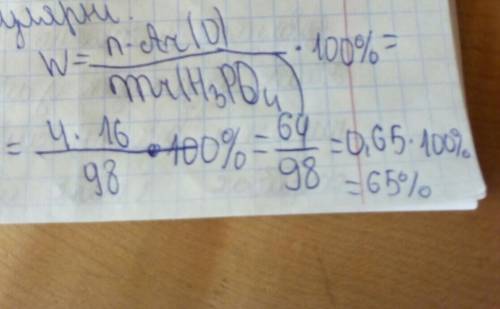 улярни.
W = n·Ar(O) / Mr(H₃PO₄) · 100% =
= 4·16 / 98 · 100% = 64 / 98 = 0,65·100%
= 65%